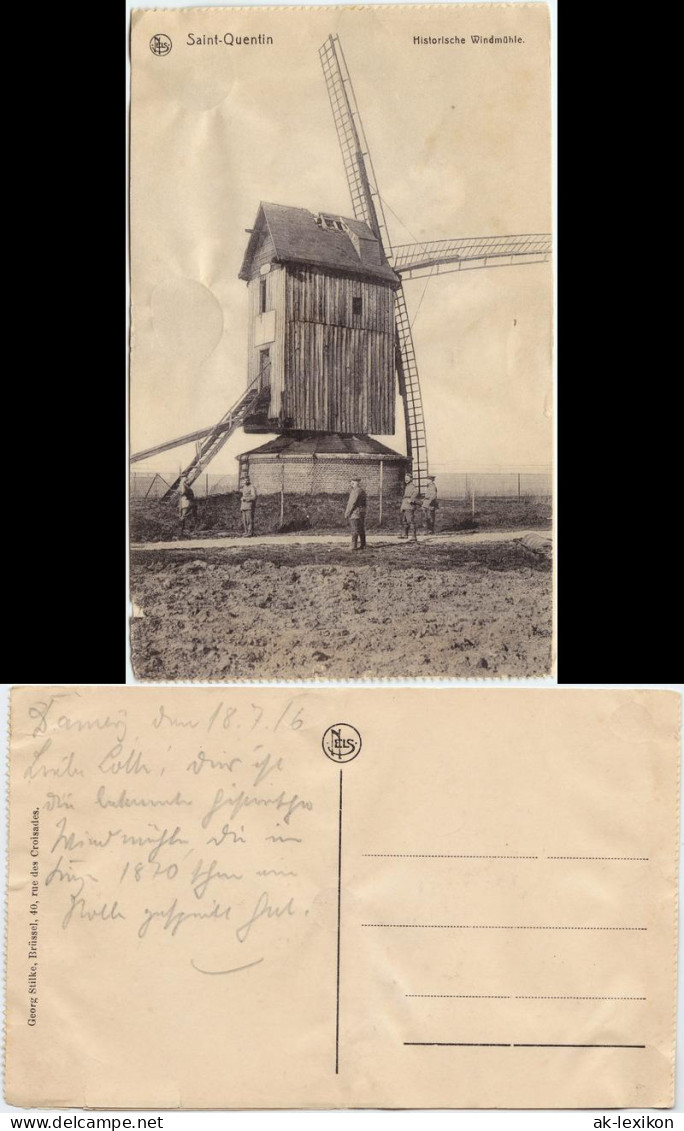 NELS
Saint-Quentin
Historische Windmühle.
Damery, den 18.7.16
Liebe Lotte! dies ist
die bekannte historische
Windmühle, die im
Kriege 1870 schon eine
Rolle gespielt hat.
NELS
Georg Stilke, Brüssel, 40, rue des Croisades.
delcampe.net
ak-lexikon